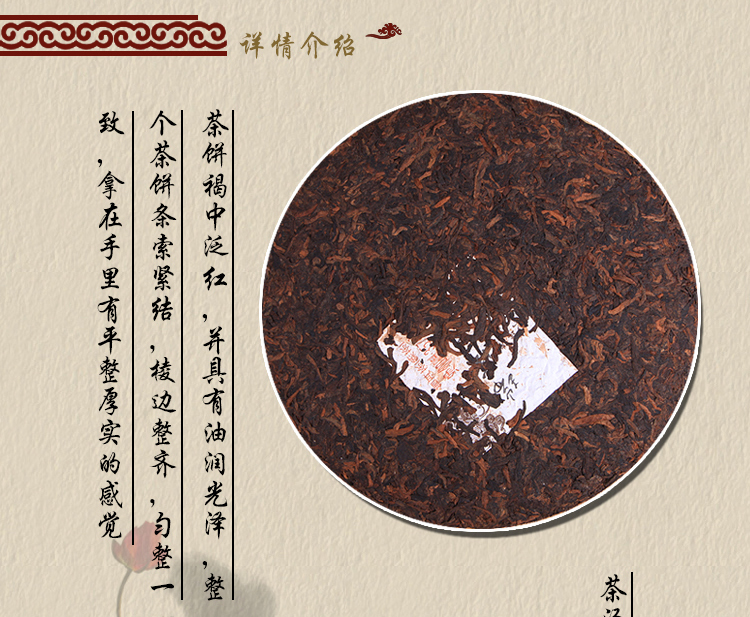 详情介绍
茶饼褐中泛红，并具有油润光泽，整
个茶饼条索紧结，棱边整齐，匀整一
致，拿在手里有平整厚实的感觉
茶